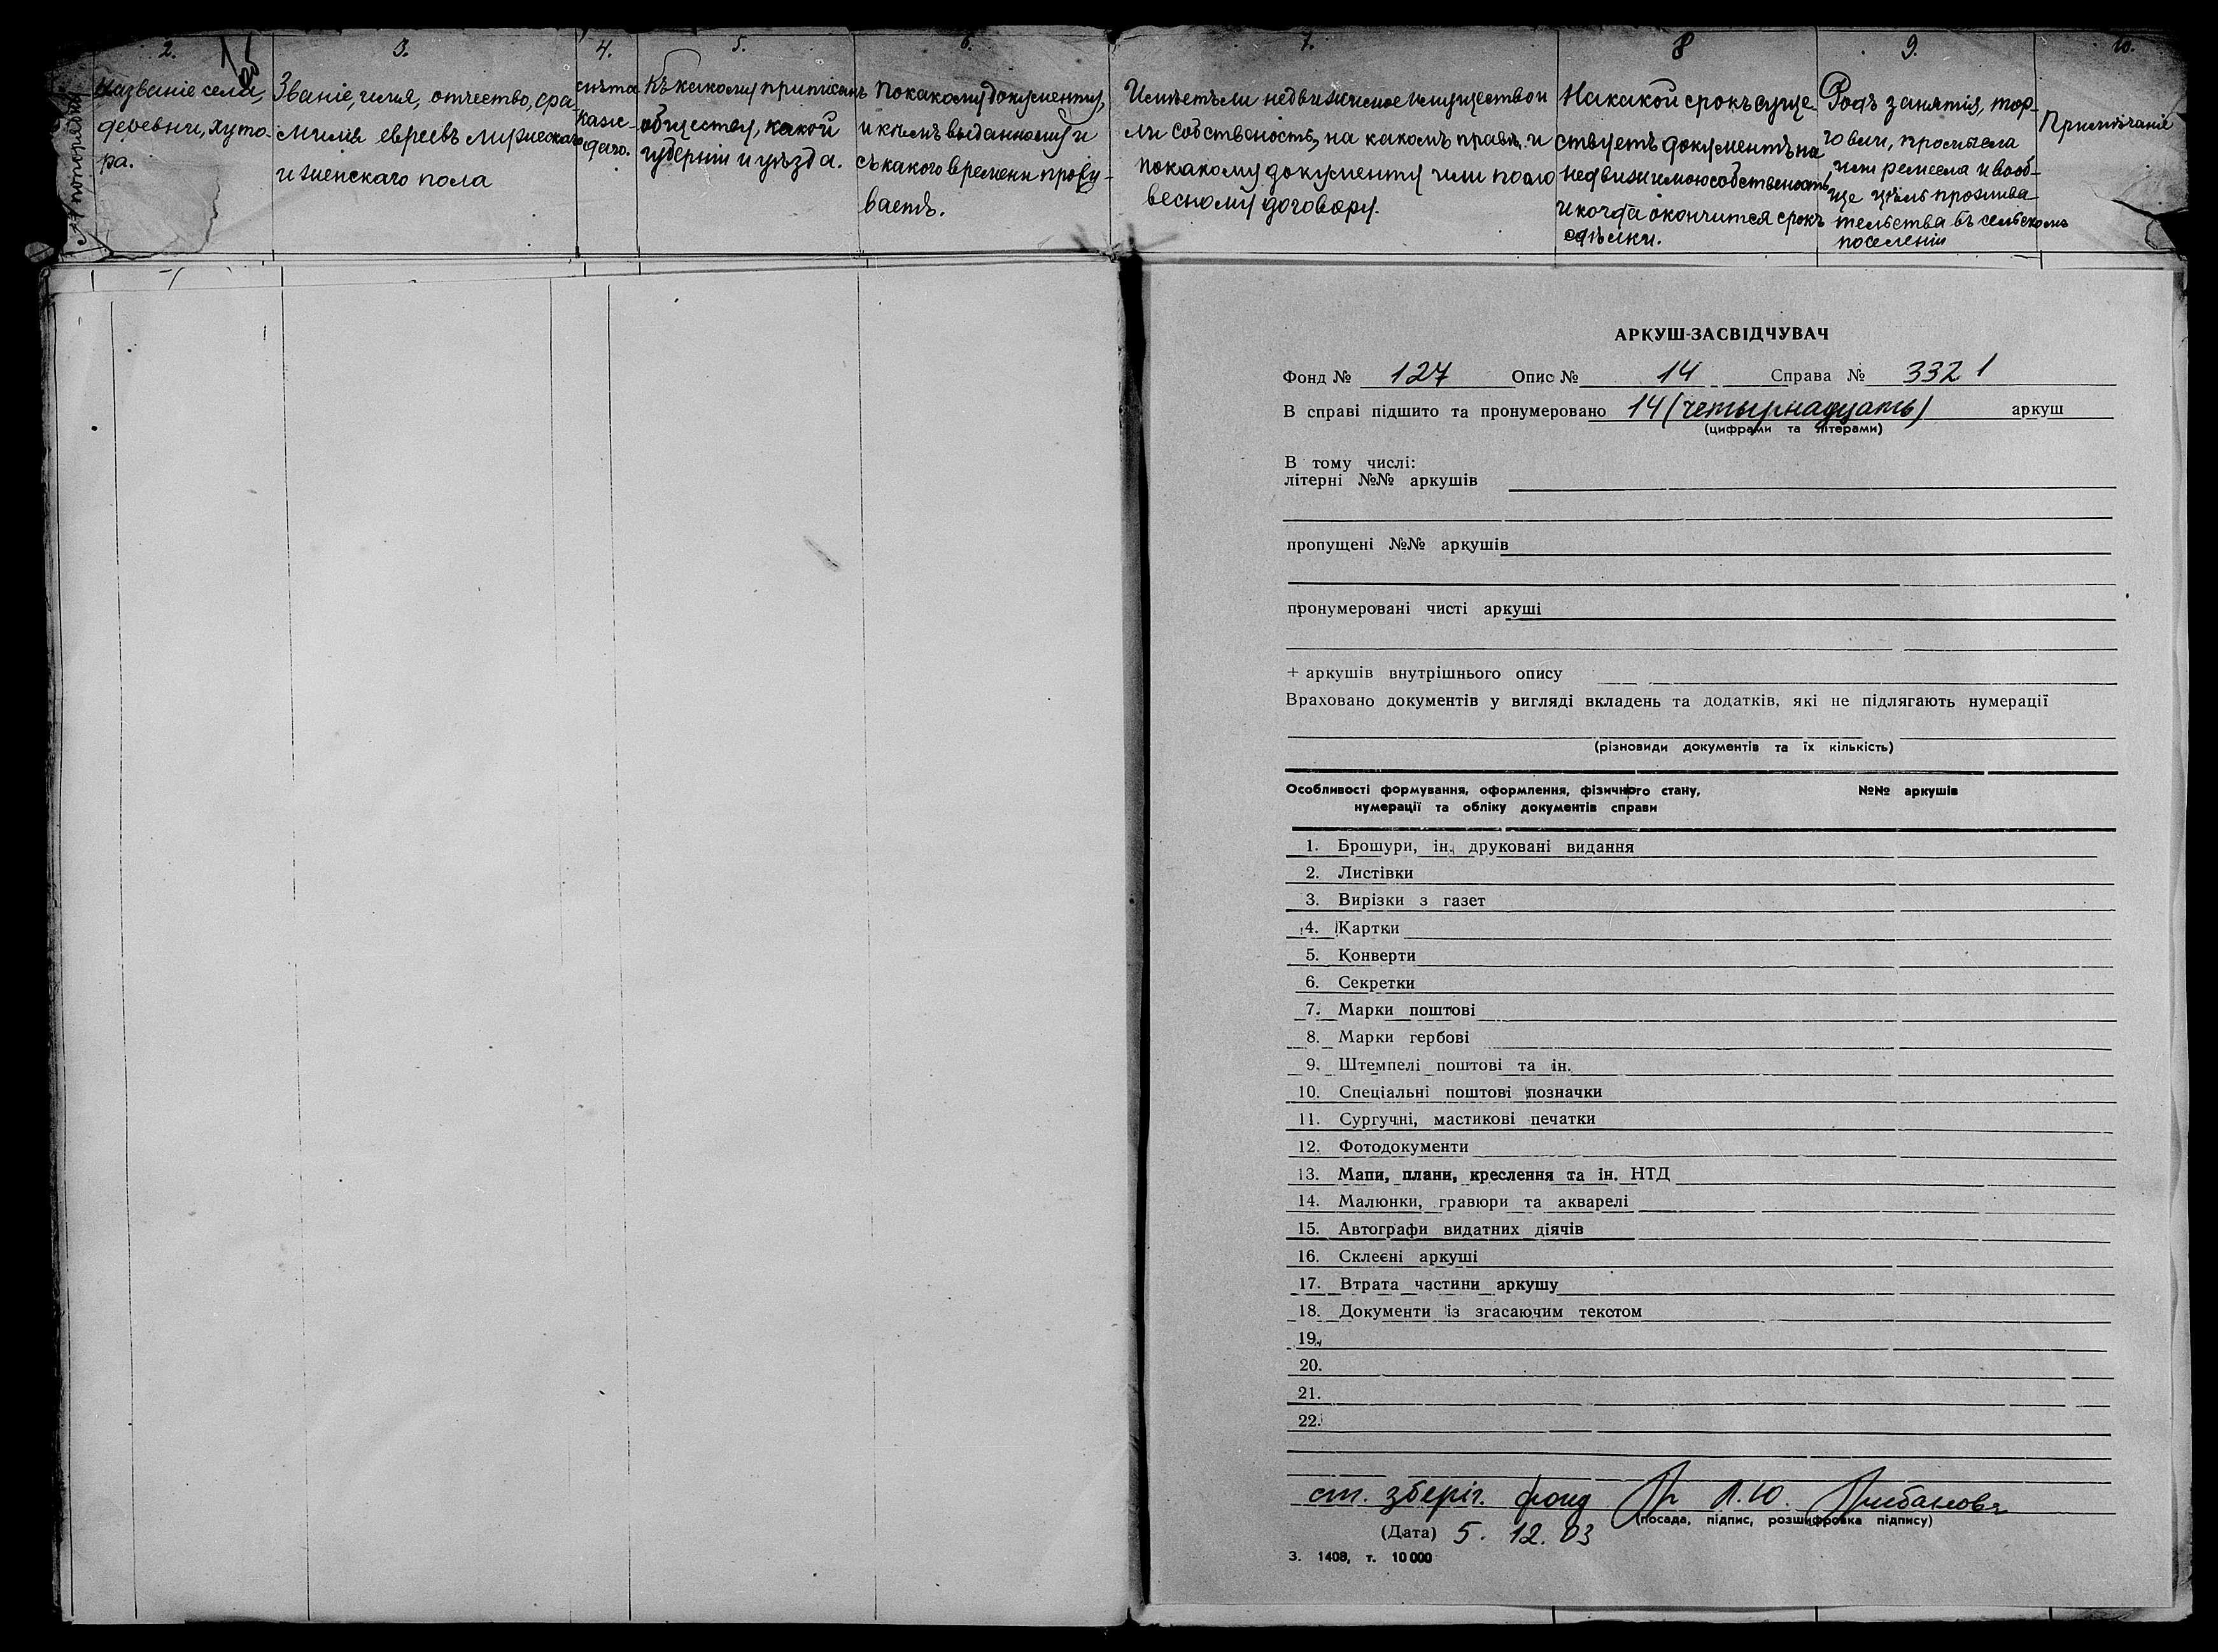 № по порядку
2.
Названіе села,
деревни, хуто-
ра.
3.
Званіе, имя, отчество, фа-
милія евреевъ мужескаго
и женскаго пола
4.
лѣта
каж-
даго.
5.
Къ какому приписанъ
обществу, какой
губерніи и уѣзда.
6.
По какому документу,
и кѣмъ выданному и
съ какого времени прожи-
ваетъ.
7.
Имѣетъ ли недвижимое имущество и
ли собственость, на какомъ правѣ, и
по какому документу или по сло
весному договору.
8
На какой срокъ суще
ствуетъ документъ на
недвижимою собственость,
и когда окончится срокъ
сдѣлки.
9.
Родъ занятія, тор-
говли, промысла
или ремесла и вооб-
ще цѣль прожива
тельства въ сельскомъ
поселеніи
10.
Примѣчаніе
АРКУШ-ЗАСВІДЧУВАЧ
Фонд № 127 Опис № 14 Справа № 3321
В справі підшито та пронумеровано 14 (четырнадцать) аркуш
(цифрами та літерами)
В тому числі:
літерні №№ аркушів
пропущені №№ аркушів
пронумеровані чисті аркуші
+ аркушів внутрішнього опису
Враховано документів у вигляді вкладень та додатків, які не підлягають нумерації
(різновиди документів та їх кількість)
Особливості формування, оформлення, фізичного стану, №№ аркушів
нумерації та обліку документів справи
1. Брошури, ін. друковані видання
2. Листівки
3. Вирізки з газет
4. Картки
5. Конверти
6. Секретки
7. Марки поштові
8. Марки гербові
9. Штемпелі поштові та ін.
10. Спеціальні поштові позначки
11. Сургучні, мастикові печатки
12. Фотодокументи
13. Мапи, плани, креслення та ін. НТД
14. Малюнки, гравюри та акварелі
15. Автографи видатних діячів
16. Склеєні аркуші
17. Втрата частини аркушу
18. Документи із згасаючим текстом
19.
20.
21.
22.
ст. зберіг. фонд Л.Ю.
(посада, підпис, розшифровка підпису)
(Дата) 5. 12. 03
З. 1408, т. 10 000